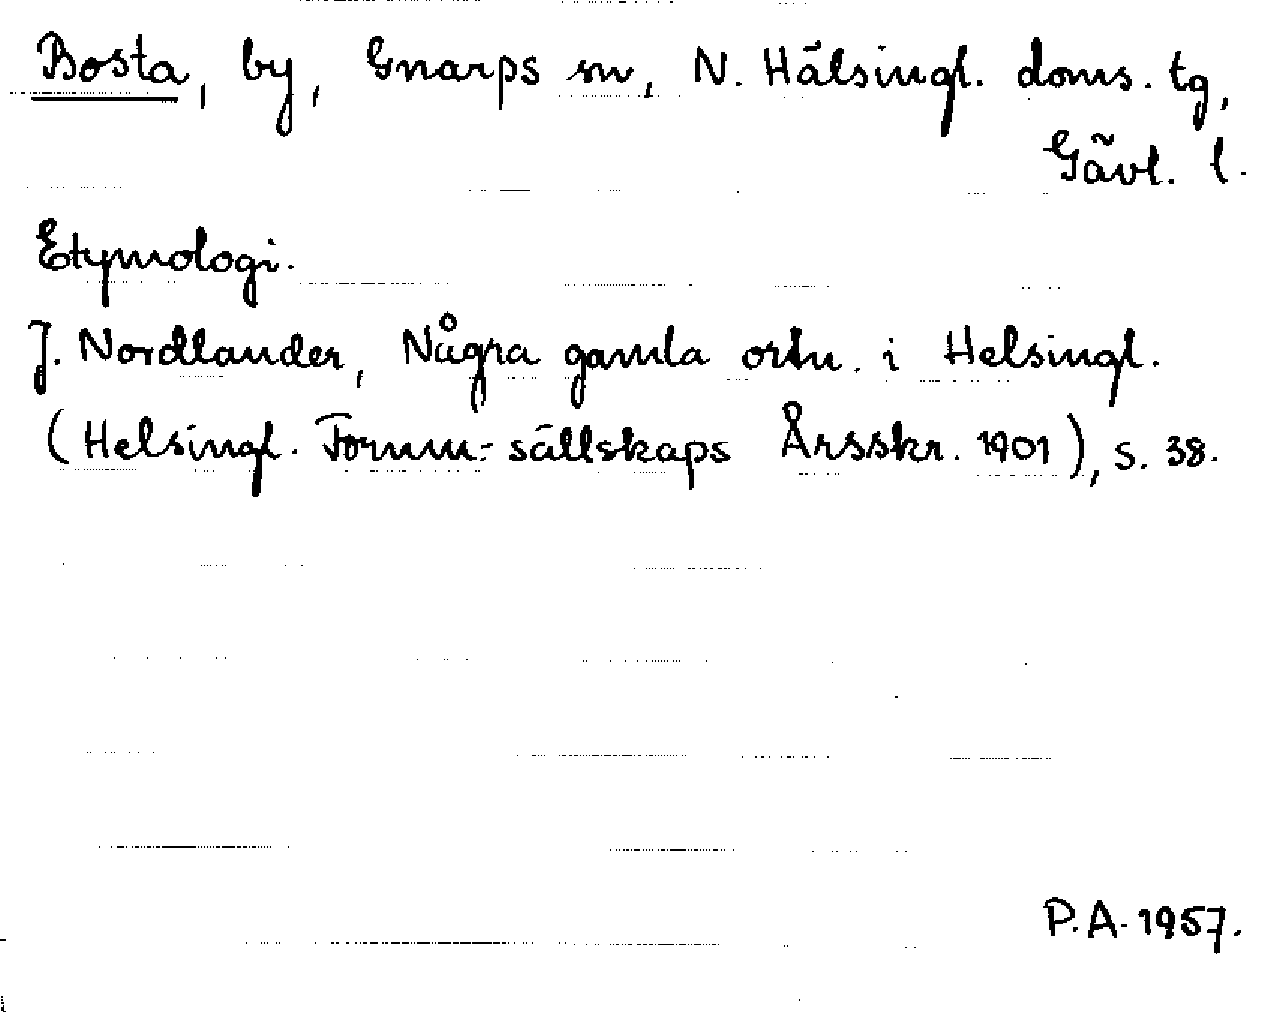 Bosta, by, Gnarps sn, N. Hälsingl. doms. tg,
Gävl. l.
Etymologi.
J. Nordlander, Några gamla ortn. i Helsingl.
(Helsingl. Fornm.-sällskaps Årsskr. 1901), s. 38.
P.A. 1957.